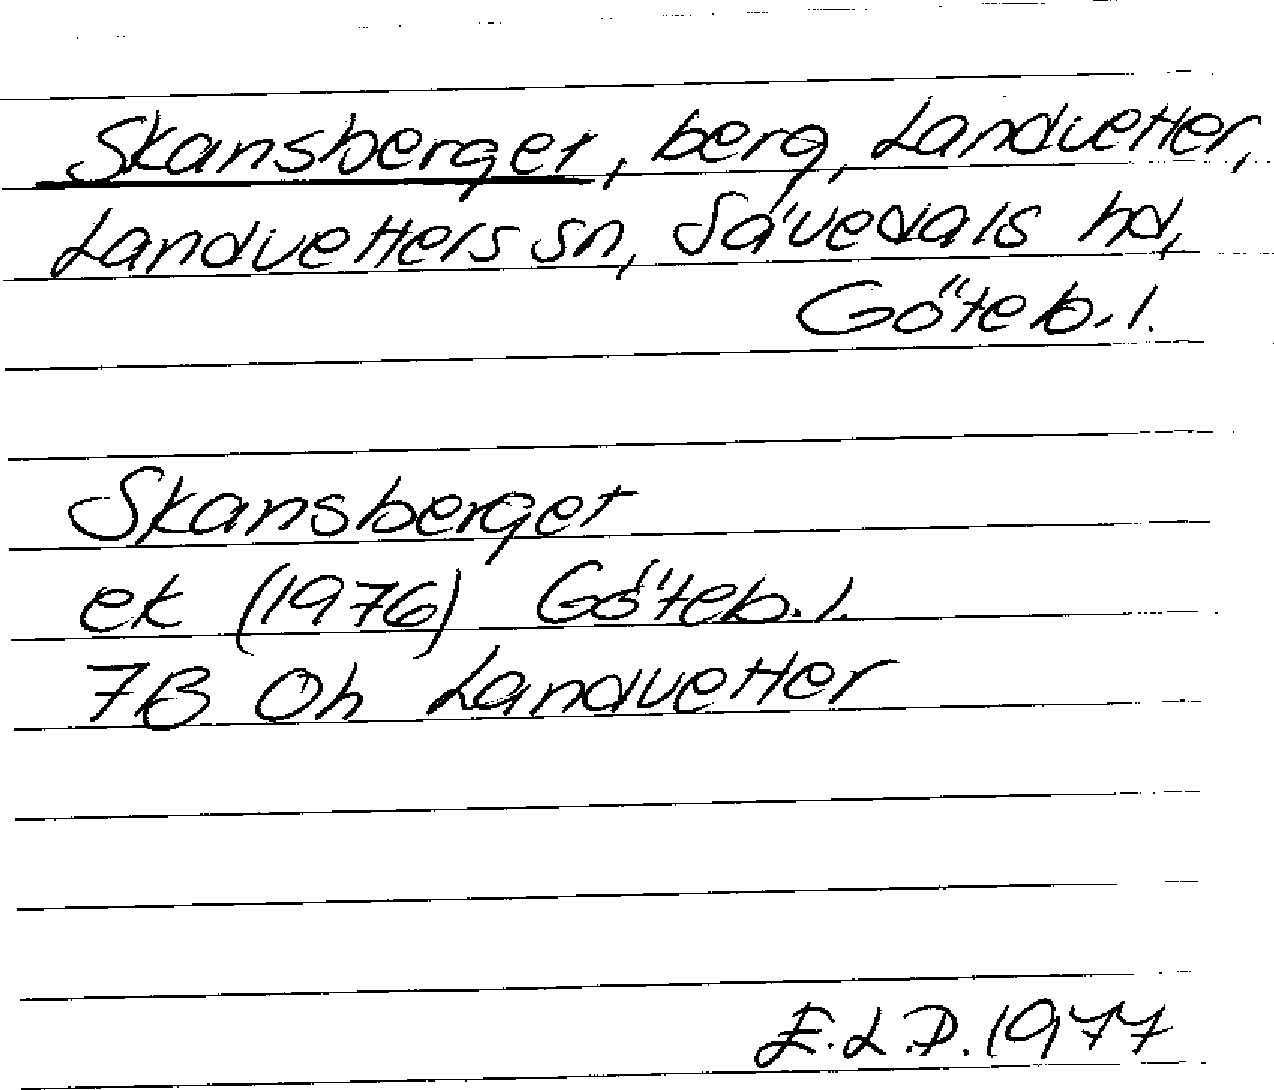 Skansberget, berg, Landvetter,
Landvetters sn, Sävedals hd,
Göteb.l.
Skansberget
ek (1976) Göteb.l.
7B 0h Landvetter
E.L.P. 1977